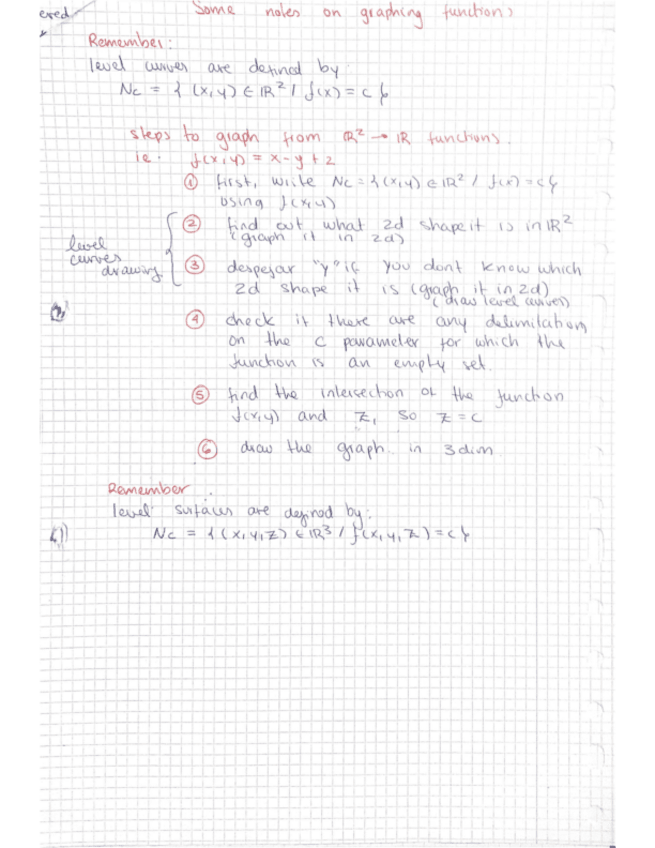 ered
Some notes on graphing functions
Remember:
level curves are defined by:
Nc = { (x,y) ∈ IR² / f(x) = c }
steps to graph from IR² → IR functions.
ie. f(x,y) = x - y + 2
① first, write Nc = {(x,y) ∈ IR² / f(x) = c}
using f(x,y)
② find out what 2d shape it is in IR²
(graph it in 2d)
level curves drawing
③ despejar "y" if you dont know which
2d shape it is (graph it in 2d)
(draw level curves)
④ check if there are any delimitations
on the c parameter for which the
function is an empty set.
⑤ find the intersection of the function
f(x,y) and z, so z = c
⑥ draw the graph in 3dim
Remember:
level surfaces are defined by:
Nc = { (x,y,z) ∈ IR³ / f(x,y,z) = c }